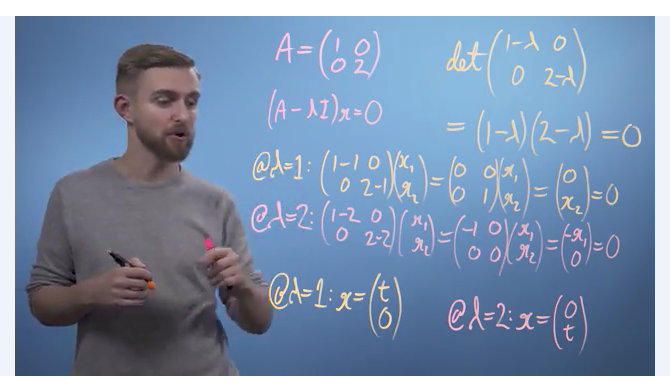 A = (1 0
0 2)
(A - λI)x = 0
det (1-λ 0
0 2-λ)
= (1-λ)(2-λ) = 0
@λ=1: (1-1 0
0 2-1)(x₁
x₂) = (0 0
0 1)(x₁
x₂) = (0
x₂) = 0
@λ=2: (1-2 0
0 2-2)(x₁
x₂) = (-1 0
0 0)(x₁
x₂) = (-x₁
0) = 0
@λ=1: x = (t
0)
@λ=2: x = (0
t)